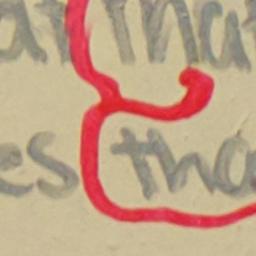 at that
es tha